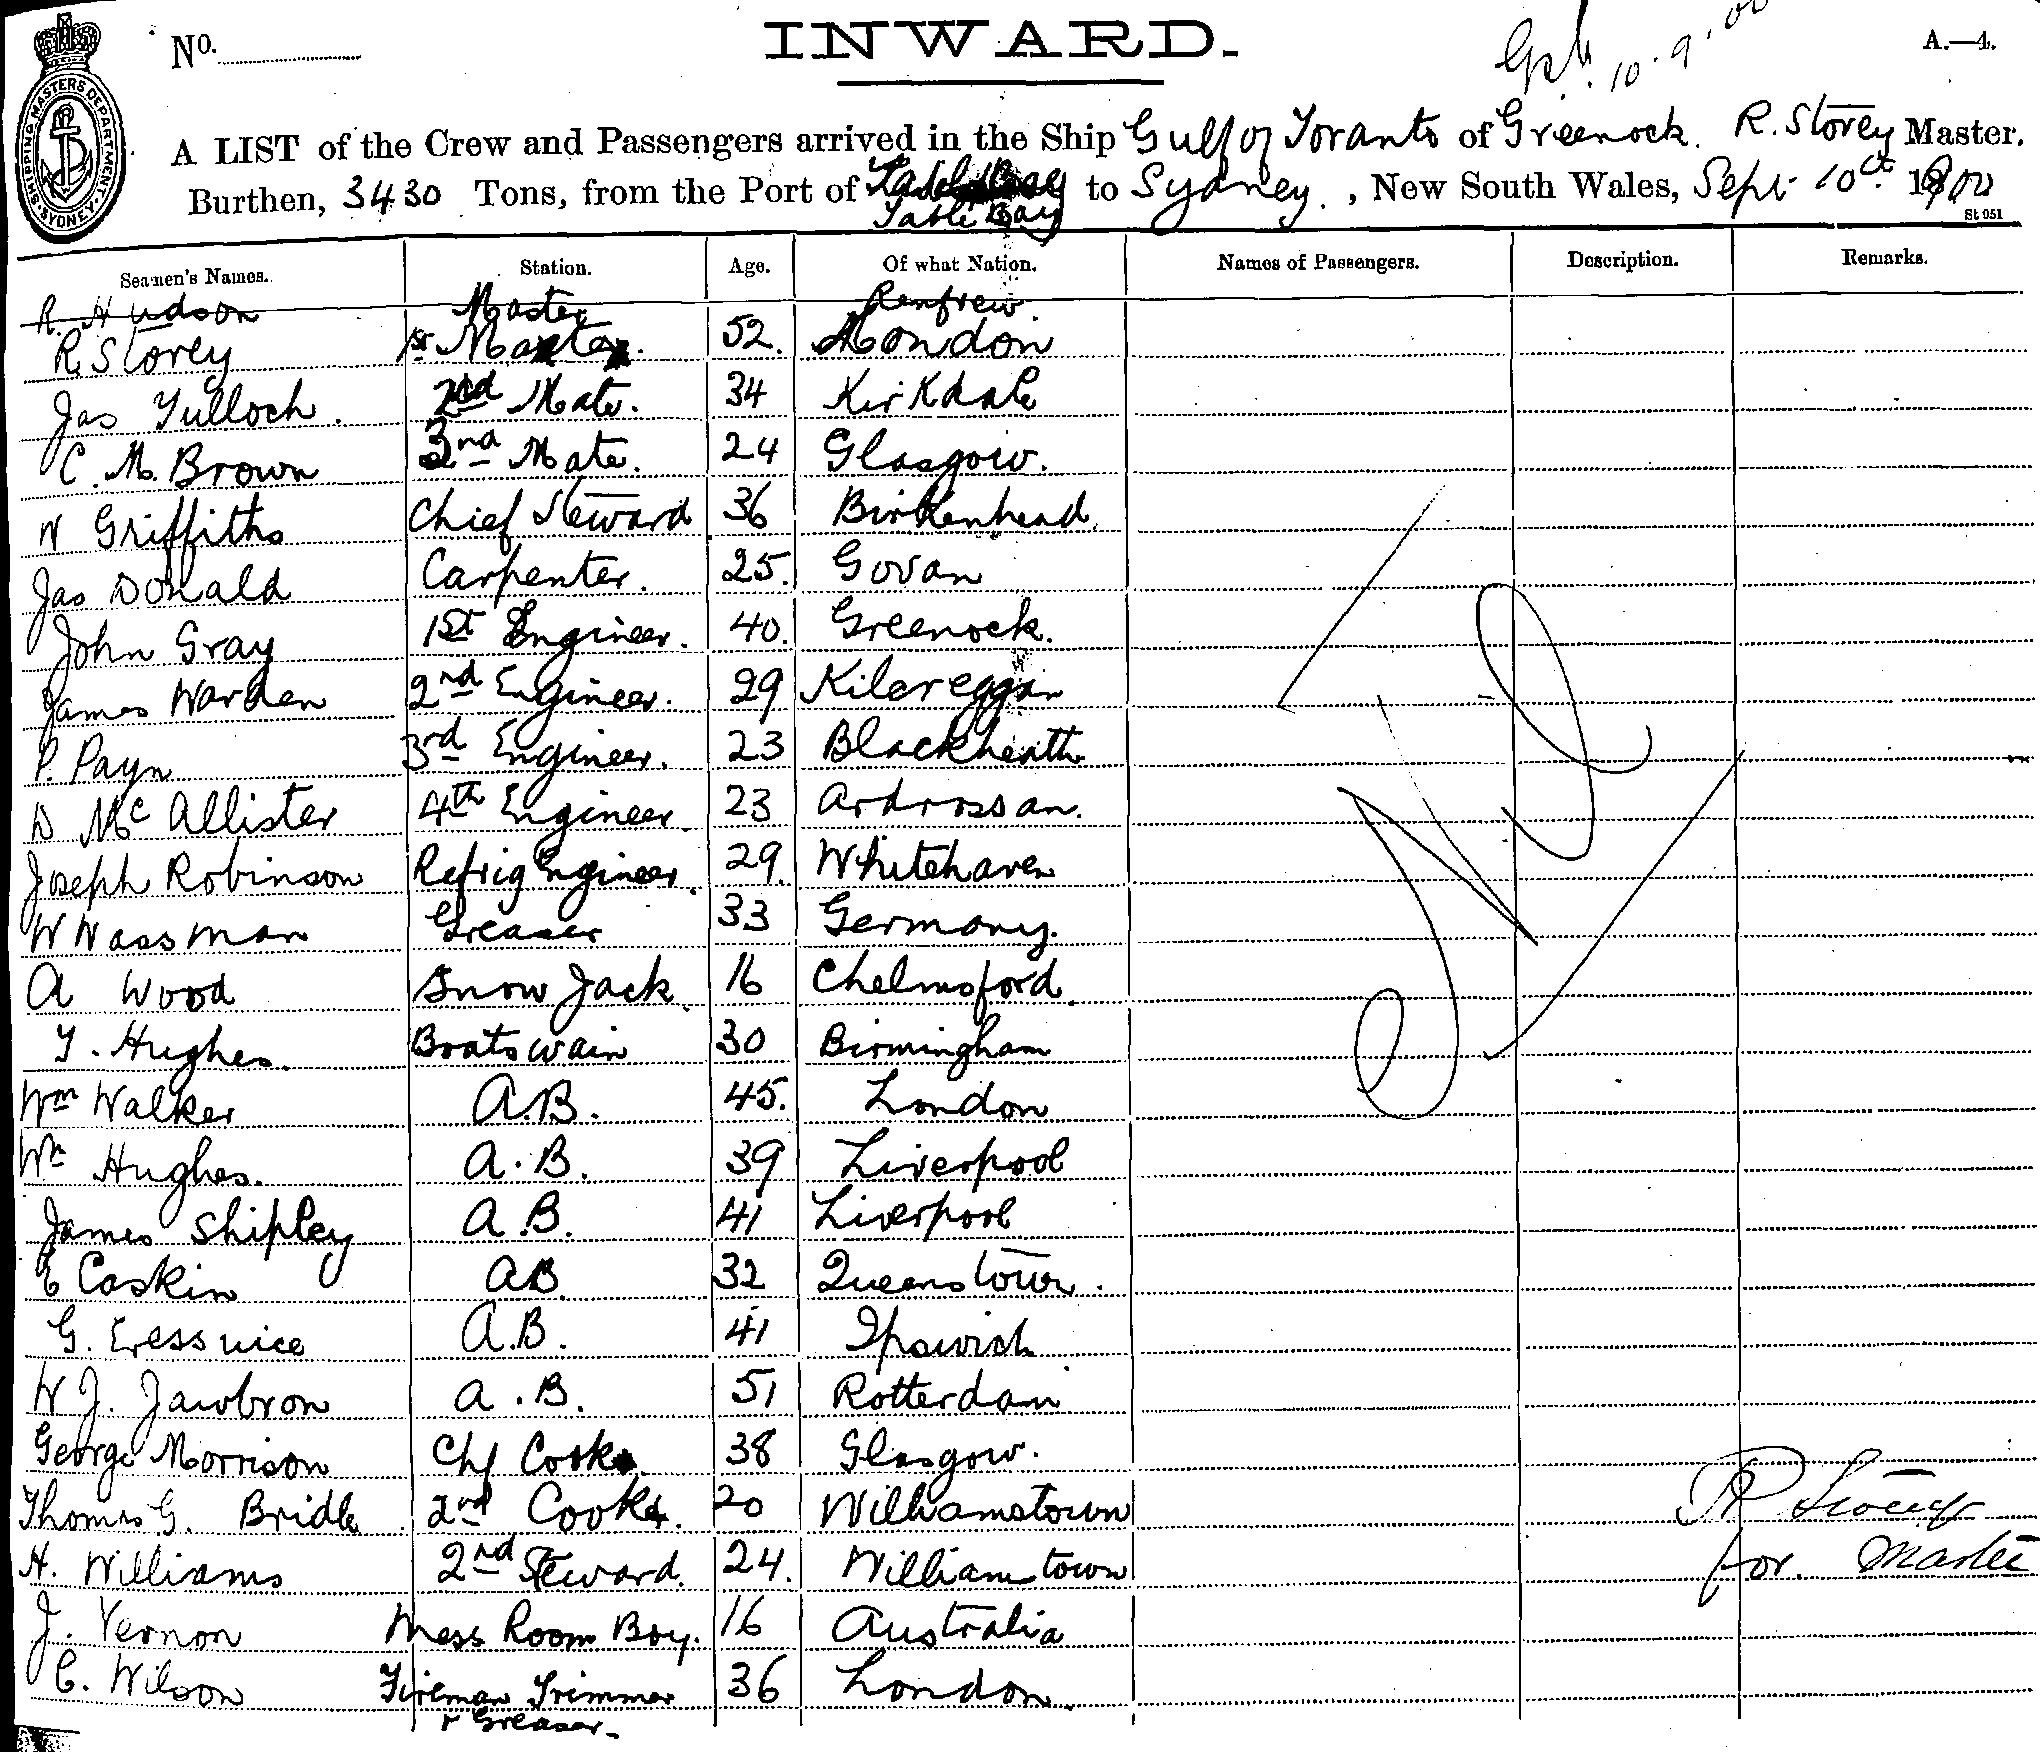 No.
INWARD.
10.9.00
A.—4.
SHIPPING MASTERS DEPARTMENT SYDNEY
A LIST of the Crew and Passengers arrived in the Ship Gulf of Toranto of Greenock. R. Storey Master.
Burthen, 3430 Tons, from the Port of Table Bay to Sydney., New South Wales, Sept 10th 1900
St 951
Seamen's Names. Station. Age. Of what Nation. Names of Passengers. Description. Remarks.
R. Hudson Master Renfrew.
R. Storey 1st Mate 52. London
Jas Tulloch. 2nd Mate. 34 Kirkdale
C. M. Brown 3rd Mate. 24 Glasgow.
W Griffiths Chief Steward 36 Birkenhead.
Jas Donald Carpenter. 25. Govan
John Gray 1st Engineer. 40. Greenock.
James Warden 2nd Engineer. 29 Kilcreggan
P. Payn 3rd Engineer. 23 Blackheath
D McAllister 4th Engineer. 23 Ardrossan.
Joseph Robinson Refrig Engineer. 29. Whitehaven
W Wassman Greaser 33 Germany.
A Wood Snow Jack. 16 Chelmsford.
T. Hughes. Boatswain 30 Birmingham
Wm Walker A.B. 45. London
Wm Hughes. A.B. 39 Liverpool
James Shipley A.B. 41 Liverpool
E Caskin AB. 32 Queenstown.
G. A.B. 41 Ipswich
W J. Jawbron A.B. 51 Rotterdam
George Morrison Chf Cook. 38 Glasgow.
Thomas G. Bridle 2nd Cook. 20 Williamstown
H. Williams 2nd Steward. 24. Williamstown
J. Vernon Mess Room Boy. 16 Australia
C. Wilson Fireman Trimmer 36 London.
& Greaser.
R Storey
for Master